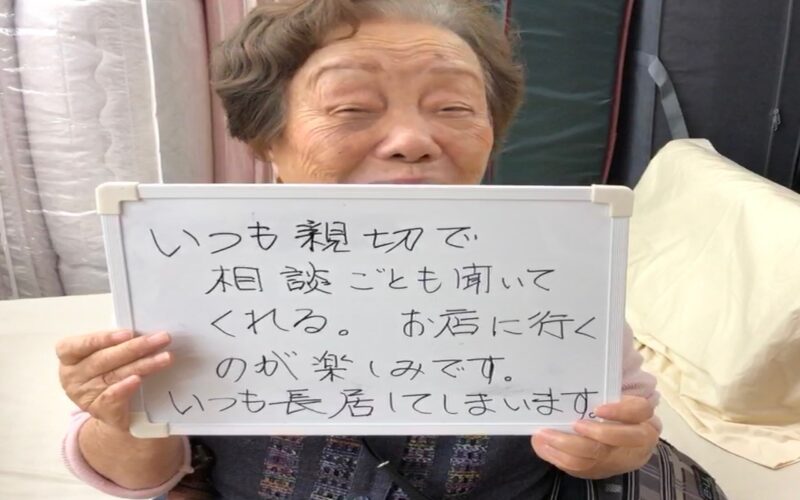 いつも親切で
相談ごとも聞いて
くれる。 お店に行く
のが楽しみです。
いつも長居してしまいます。